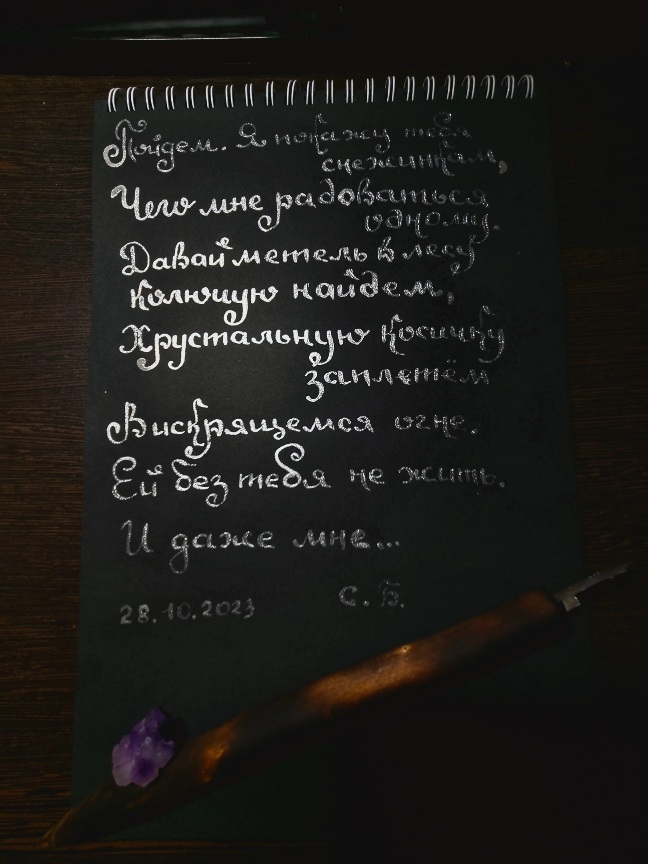 Пойдем. Я покажу тебя
снежинкам,
Чего мне радоваться
одному.
Давай метель в лесу
колючую найдем,
Хрустальную косичку
заплетём
В искрящемся огне.
Ей без тебя не жить.
И даже мне...
28.10.2023 С. Б.